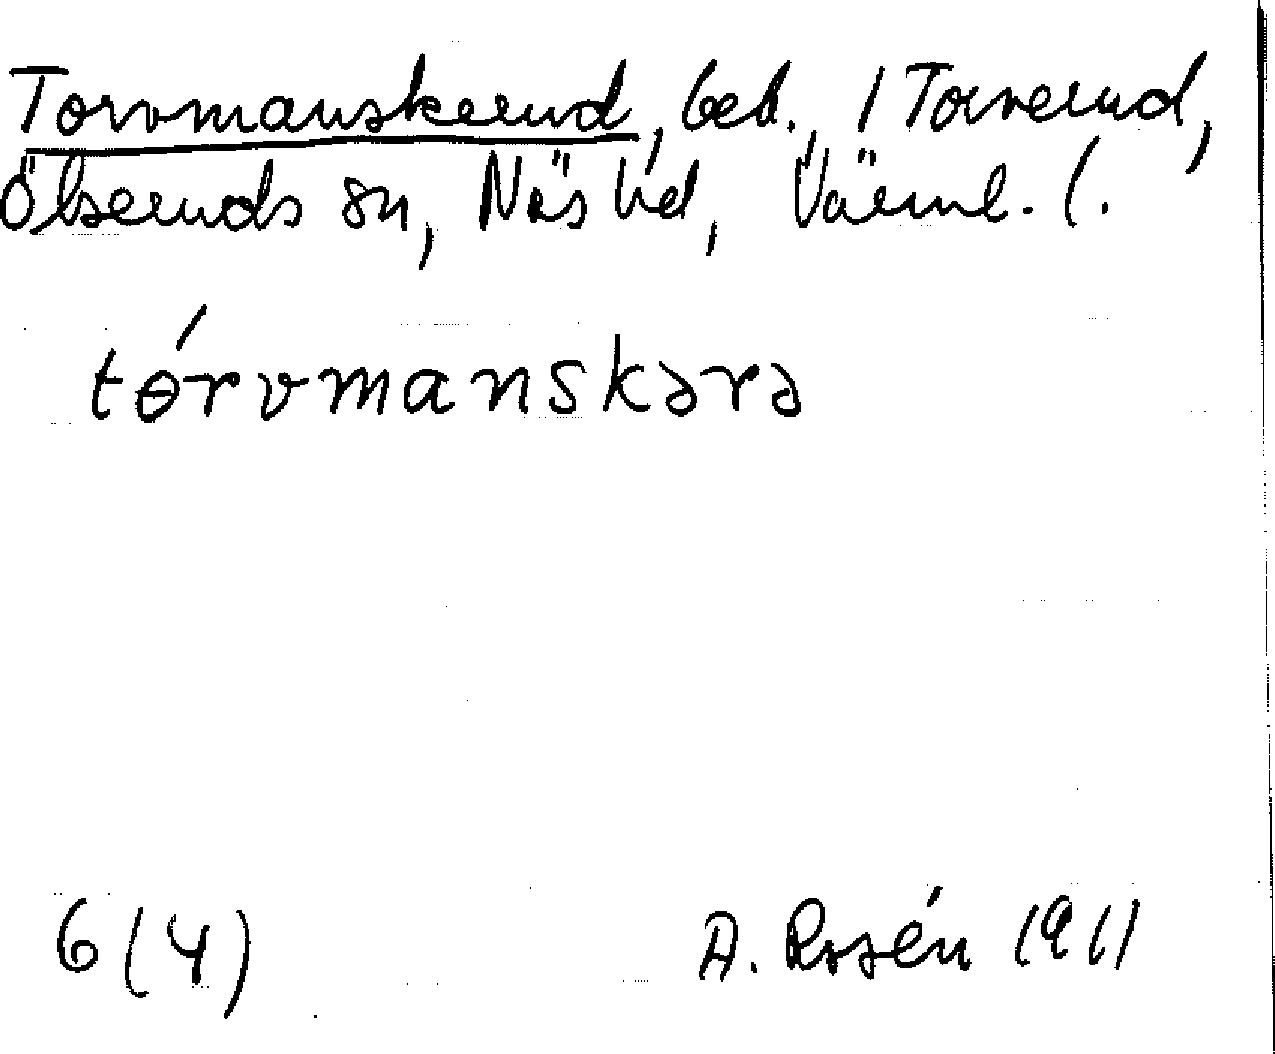 Torvmanskerud, beb., i Torverud,
Ölseruds sn, Näs hd, Värml. l.
tórvmanskərə
6 (4) A. Rosén 1911